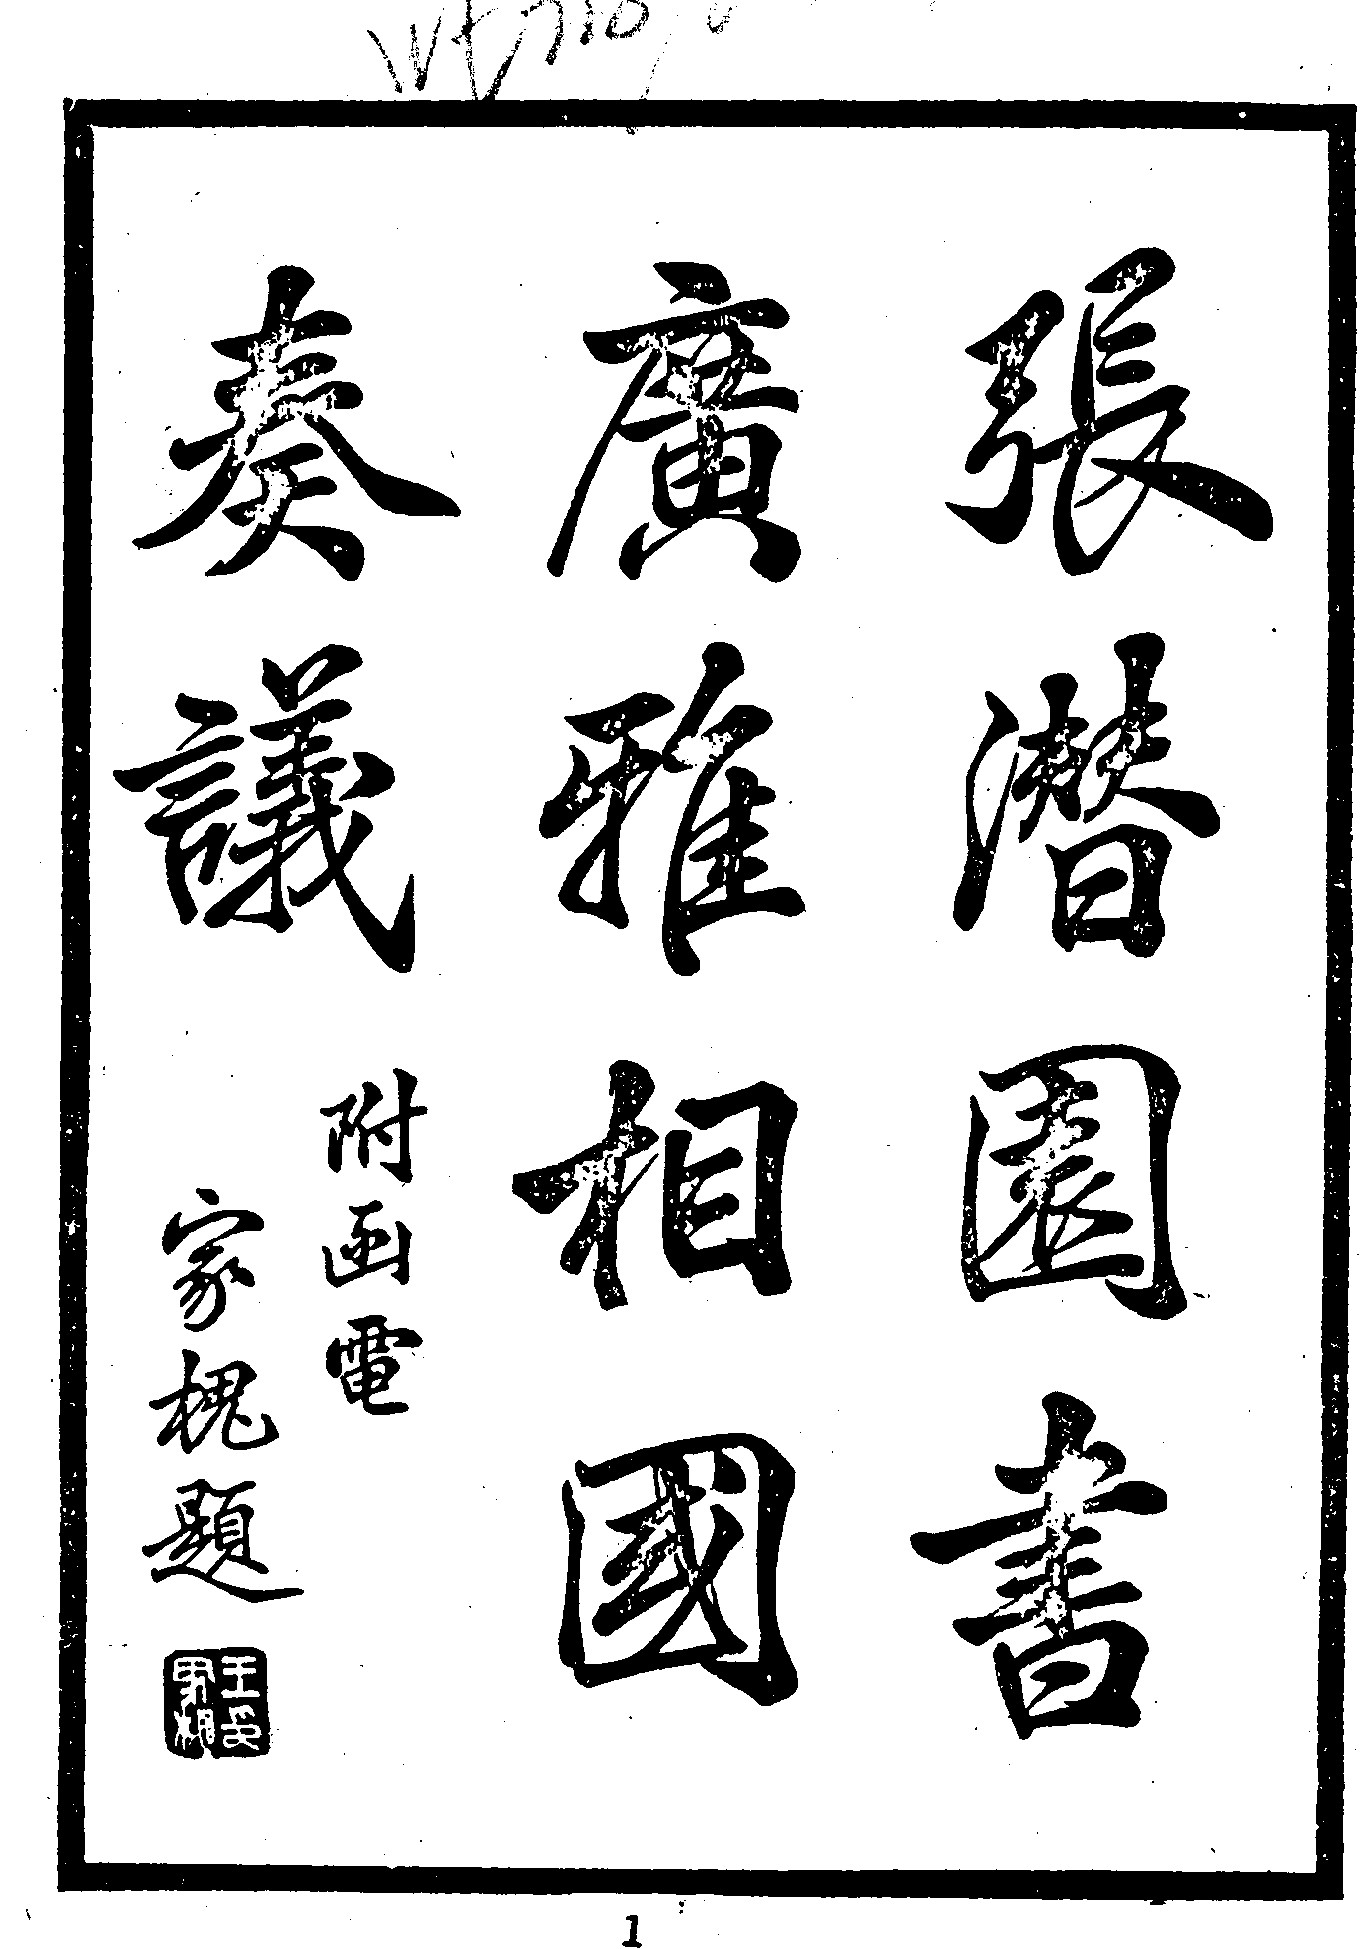 張潜園書
廣雅相國
奏議
附函電
家槐題
王家槐印
1